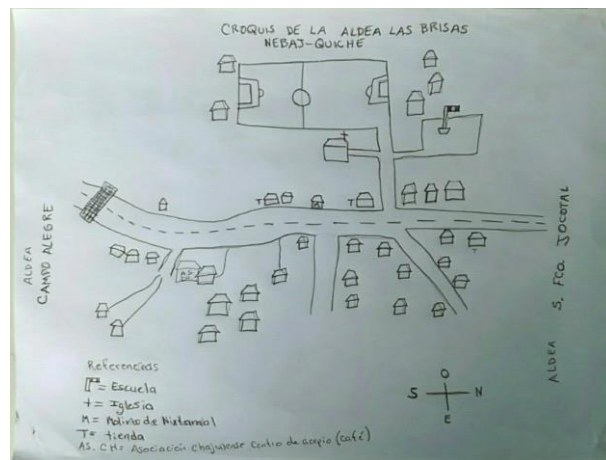 CROQUIS DE LA ALDEA LAS BRISAS
NEBAJ-QUICHE
T
T
ALDEA
CAMPO ALEGRE
T
ALDEA S. FCO JOCOTAL
Referencias
= Escuela
+ = Iglesia
M = Molino de Nixtamal
T = tienda
AS. CH = Asociación Chajulense Centro de acopio (café)
O
S N
E